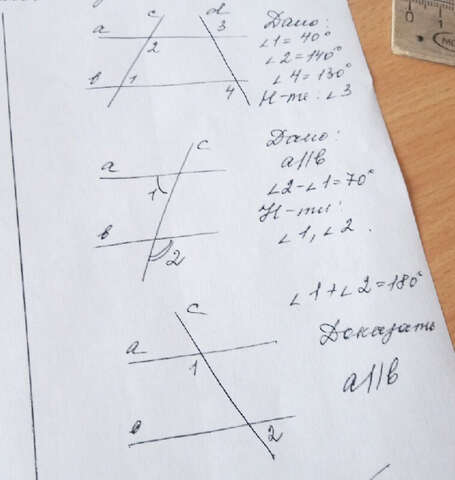 c d
a 3
2
b 1
4
Дано:
∠1=40°
∠2=140°
∠4=130°
Н-ти: ∠3
0 1
c
a
1
b
2
Дано:
a||b
∠2-∠1=70°
Н-ти:
∠1, ∠2.
c
a
1
b
2
∠1+∠2=180°
Доказать
a||b